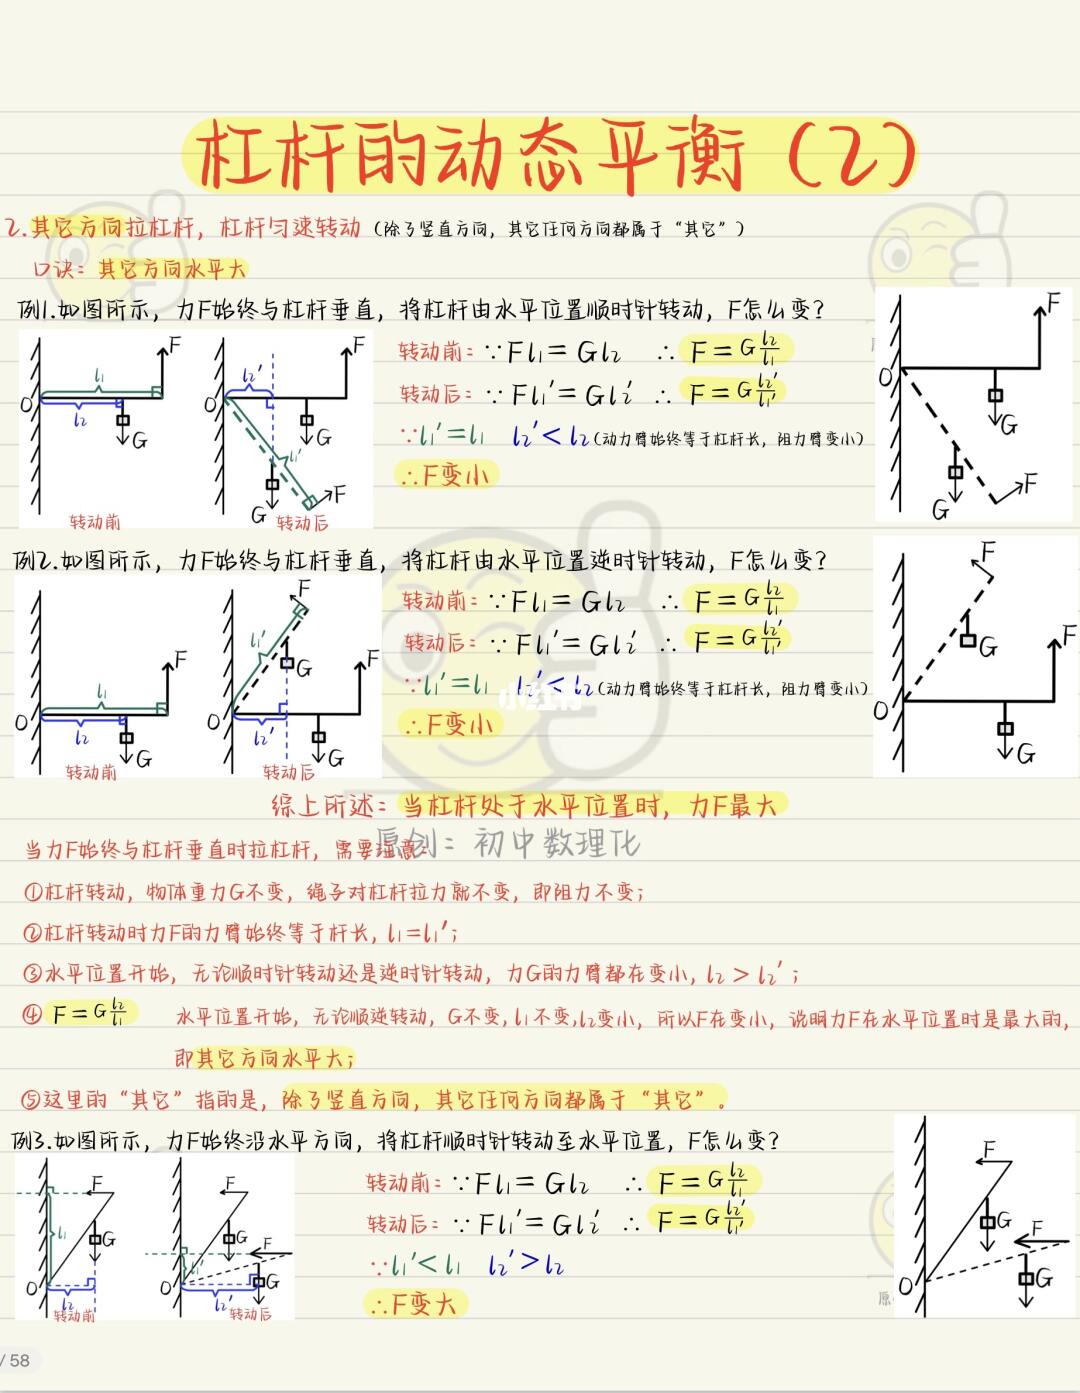 杠杆的动态平衡（2）
2.其它方向拉杠杆，杠杆匀速转动（除了竖直方向，其它任何方向都属于“其它”）
口诀：其它方向水平大
例1.如图所示，力F始终与杠杆垂直，将杠杆由水平位置顺时针转动，F怎么变？
F
l₁
O
l₂
G
转动前
F
l₂′
O
G
l₁′
F
G
转动后
转动前：∵Fl₁=Gl₂ ∴F=G l₂/l₁
转动后：∵Fl₁′=Gl₂′ ∴F=G l₂′/l₁′
∵l₁′=l₁ l₂′<l₂（动力臂始终等于杠杆长，阻力臂变小）
∴F变小
F
O
G
F
G
例2.如图所示，力F始终与杠杆垂直，将杠杆由水平位置逆时针转动，F怎么变？
F
l₁
O
l₂
G
转动前
F
l₁′
G
F
O
l₂′
G
转动后
转动前：∵Fl₁=Gl₂ ∴F=G l₂/l₁
转动后：∵Fl₁′=Gl₂′ ∴F=G l₂′/l₁′
∵l₁′=l₁ l₂′<l₂（动力臂始终等于杠杆长，阻力臂变小）
小红书
∴F变小
F
G
F
O
G
综上所述：当杠杆处于水平位置时，力F最大
原创：初中数理化
当力F始终与杠杆垂直时拉杠杆，需要注意：
①杠杆转动，物体重力G不变，绳子对杠杆拉力就不变，即阻力不变；
②杠杆转动时力F的力臂始终等于杆长，l₁=l₁′；
③水平位置开始，无论顺时针转动还是逆时针转动，力G的力臂都在变小，l₂>l₂′；
④F=G l₂/l₁ 水平位置开始，无论顺逆转动，G不变，l₁不变，l₂变小，所以F在变小，说明力F在水平位置时是最大的，
即其它方向水平大；
⑤这里的“其它”指的是，除了竖直方向，其它任何方向都属于“其它”。
例3.如图所示，力F始终沿水平方向，将杠杆顺时针转动至水平位置，F怎么变？
F
l₁
G
O
l₂
转动前
F
G
F
l₁′
O
G
l₂′
转动后
转动前：∵Fl₁=Gl₂ ∴F=G l₂/l₁
转动后：∵Fl₁′=Gl₂′ ∴F=G l₂′/l₁′
∵l₁′<l₁ l₂′>l₂
∴F变大
F
G
F
O
G
原
/58